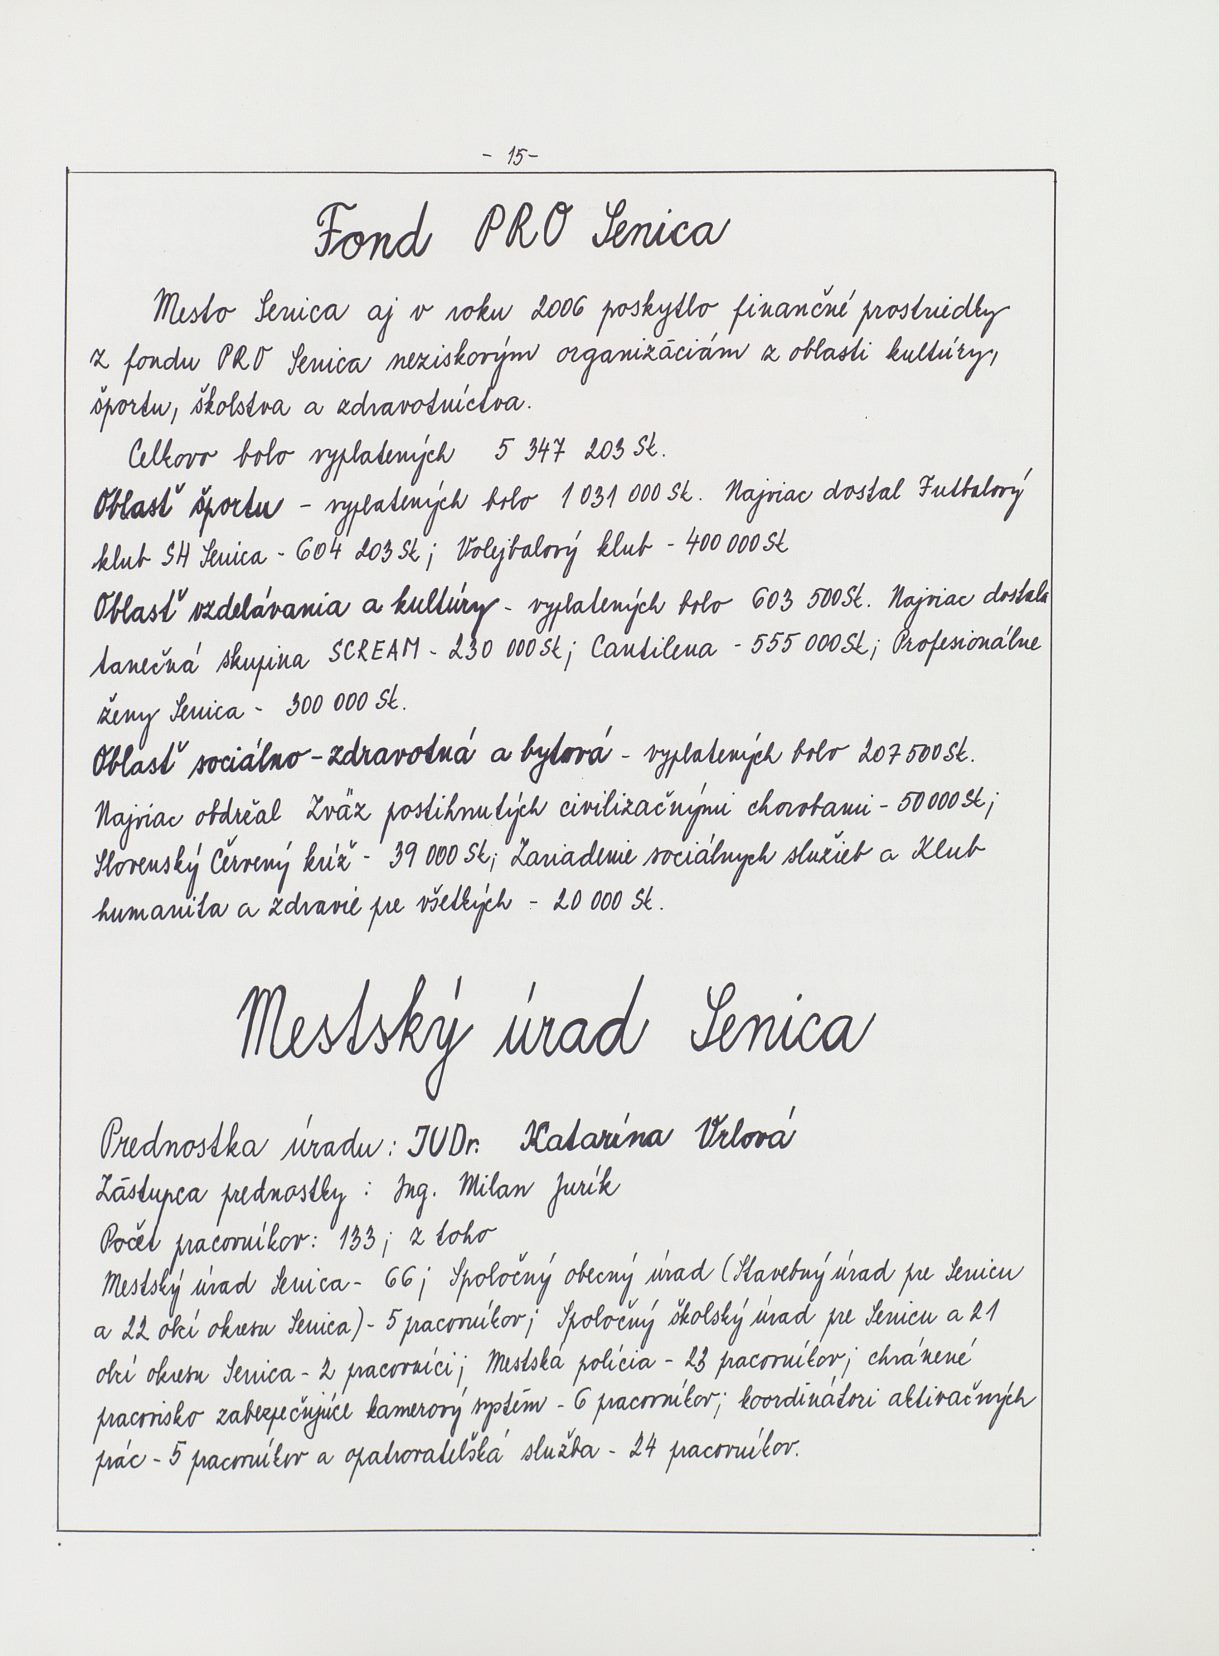 - 15 -
Fond PRO Senica
Mesto Senica aj v roku 2006 poskytlo finančné prostriedky
z fondu PRO Senica neziskovým organizáciám z oblasti kultúry,
športu, školstva a zdravotníctva.
Celkovo bolo vyplatených 5 347 203 Sk.
Oblasť športu - vyplatených bolo 1 031 000 Sk. Najviac dostal Futbalový
klub SH Senica - 604 203 Sk; Volejbalový klub - 400 000 Sk
Oblasť vzdelávania a kultúry - vyplatených bolo 603 500 Sk. Najviac dostala
tanečná skupina SCREAM - 230 000 Sk; Cantilena - 555 000 Sk; Profesionálne
ženy Senica - 300 000 Sk.
Oblasť sociálno-zdravotná a bytová - vyplatených bolo 207 500 Sk.
Najviac obdržal Zväz postihnutých civilizačnými chorobami - 50 000 Sk;
Slovenský Červený kríž - 39 000 Sk; Zariadenie sociálnych služieb a Klub
humanita a zdravie pre všetkých - 20 000 Sk.
Mestský úrad Senica
Prednostka úradu: JUDr. Katarína Vrlová
Zástupca prednostky : Ing. Milan Jurík
Počet pracovníkov: 133; z toho
Mestský úrad Senica - 66; Spoločný obecný úrad (Stavebný úrad pre Senicu
a 22 obcí okresu Senica) - 5 pracovníkov; Spoločný školský úrad pre Senicu a 21
obcí okresu Senica - 2 pracovníci; Mestská polícia - 23 pracovníkov; chránené
pracovisko zabezpečujúce kamerový systém - 6 pracovníkov; koordinátori aktivačných
prác - 5 pracovníkov a opatrovateľská služba - 24 pracovníkov.